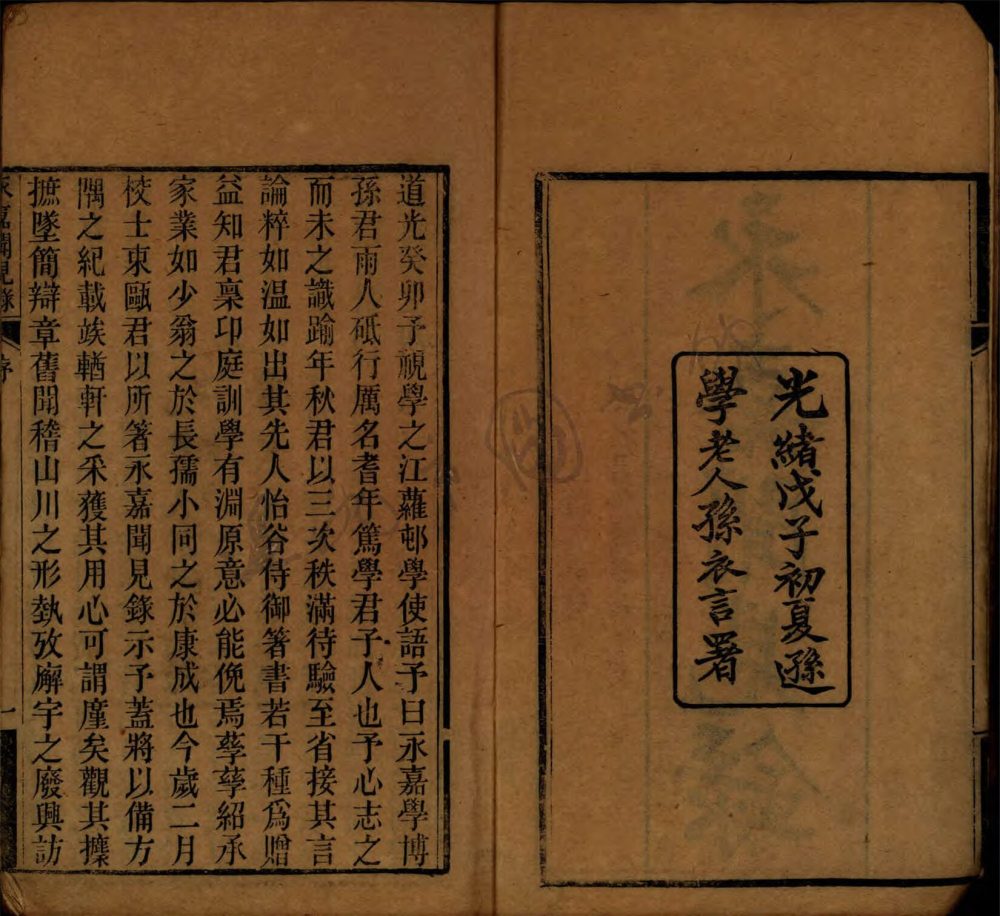 光緒戊子初夏遜
學老人孫衣言署
道光癸卯予視學之江蘿邨學使語予曰永嘉學博
孫君雨人砥行厲名耆年篤學君子人也予心志之
而未之識踰年秋君以三次秩滿待驗至省接其言
論粹如溫如出其先人怡谷侍御箸書若干種爲贈
益知君稟卬庭訓學有淵原意必能俛焉孳孳紹承
家業如少翁之於長孺小同之於康成也今歲二月
校士東甌君以所箸永嘉聞見錄示予蓋將以備方
隅之紀載竢輶軒之采獲其用心可謂廑矣觀其攗
摭墜簡辯章舊聞稽山川之形埶攷廨宇之廢興訪
永嘉聞見錄
序
一